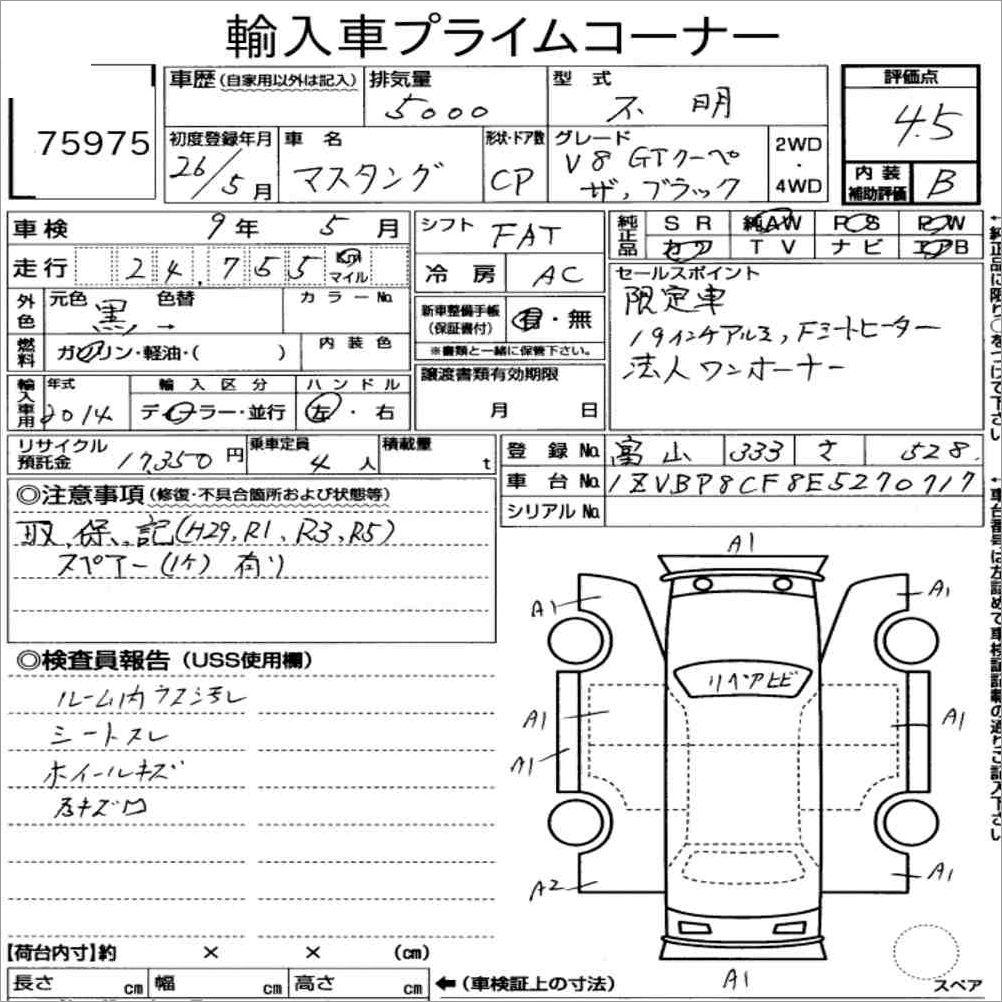 輸入車プライムコーナー
75975
車歴(自家用以外は記入) 排気量 5000 型式 不明 評価点 4.5
初度登録年月 26/5月 車名 マスタング 形状・ドア数 CP グレード V8 GTクーペ ザ,ブラック 2WD・4WD 内装補助評価 B
車検 9年 5月 シフト FAT 純正品 SR 純AW PS PW
走行 24,755 Km マイル 冷房 AC カワ TV ナビ エアB
外色 元色 黒 → 色替 カラーNo. 新車整備手帳(保証書付) 有・無
※書類と一緒に保管下さい。
燃料 ガソリン・軽油・( ) 内装色
セールスポイント
限定車
19インチアルミ,Fシートヒーター
法人ワンオーナー
輸入車用 年式 2014 輸入区分 ディーラー・並行 ハンドル 左・右 譲渡書類有効期限 月 日
リサイクル預託金 17,350円 乗車定員 4人 積載量 t 登録No. 富山 333 さ 528
車台No. 1ZVBP8CF8E5270717
シリアルNo.
◎注意事項(修復・不具合箇所および状態等)
取、保、記(H29,R1,R3,R5)
スペアー(1ケ)有り
◎検査員報告(USS使用欄)
ルーム内ウス汚レ
シートスレ
ホイールキズ
A1
A1
A1
リペアヒビ
A1
A1
A1
A2
A1
A1
スペア
【荷台内寸】約 × × (cm)
長さ cm 幅 cm 高さ cm ←(車検証上の寸法)
←純正品に限り○をつけて下さい
←車台番号は左詰めで車検証記載の通りご記入下さい